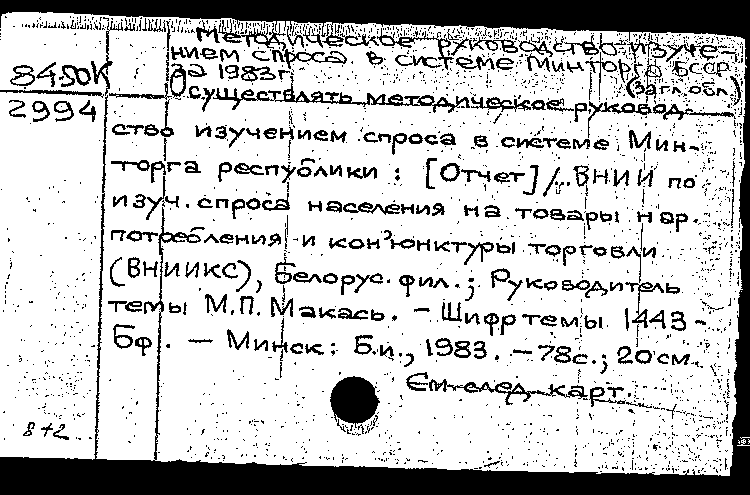 Методическое руководство изуче-
нием спроса в системе Минторга БССР
за 1983г.
(Загл. обл.)
84.50К
2994
Осуществлять методическое руковод-
ство изучением спроса в системе Мин-
торга республики : [Отчет] / ВНИИ по
изуч. спроса населения на товары нар.
потребления и кон'юнктуры торговли
(ВНИИКС), Белорус. фил.; Руководитель
темы М.П. Макась. – Шифр темы 1443-
Бф. – Минск: Б.и., 1983. – 78с.; 20см.
См. след. карт.
8+2